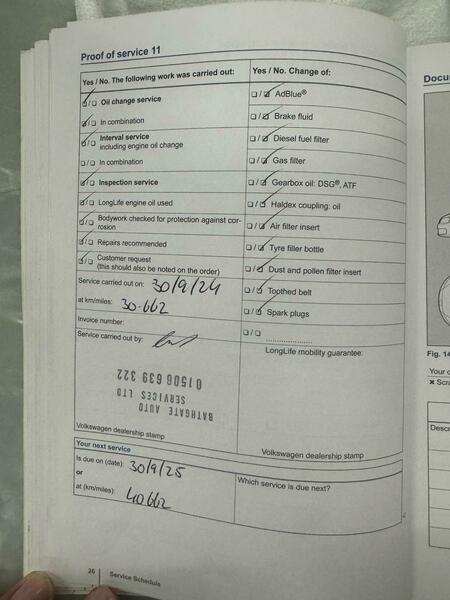 Proof of service 11
Yes / No. The following work was carried out:
Oil change service
In combination
Interval service
including engine oil change
In combination
Inspection service
LongLife engine oil used
Bodywork checked for protection against cor-
rosion
Repairs recommended
Customer request
(this should also be noted on the order)
Service carried out on: 30/9/24
at km/miles: 30.662
Invoice number:
Service carried out by:
BATHGATE AUTO
SERVICES LTD
01506 639 322
Volkswagen dealership stamp
Yes / No. Change of:
AdBlue®
Brake fluid
Diesel fuel filter
Gas filter
Gearbox oil: DSG®, ATF
Haldex coupling: oil
Air filter insert
Tyre filler bottle
Dust and pollen filter insert
Toothed belt
Spark plugs
LongLife mobility guarantee:
Volkswagen dealership stamp
Your next service
Is due on (date): 30/9/25
or
at (km/miles): 40662
Which service is due next?
26
Service Schedule
Docu
Fig. 14
Your c
× Scra
Descr